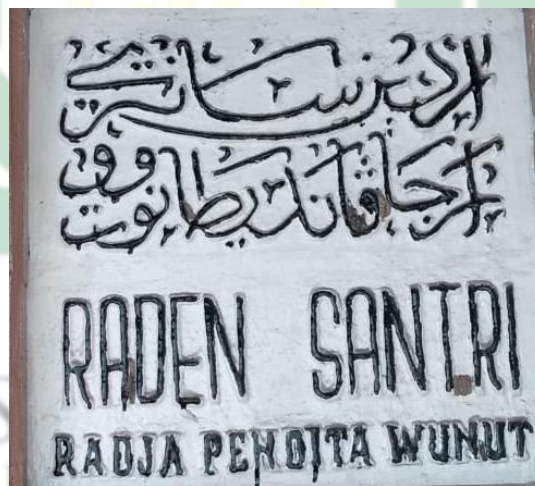 رادين سانتري
راجا ڤانديطا وونوت
RADEN SANTRI
RADJA PENDITA WUNUT